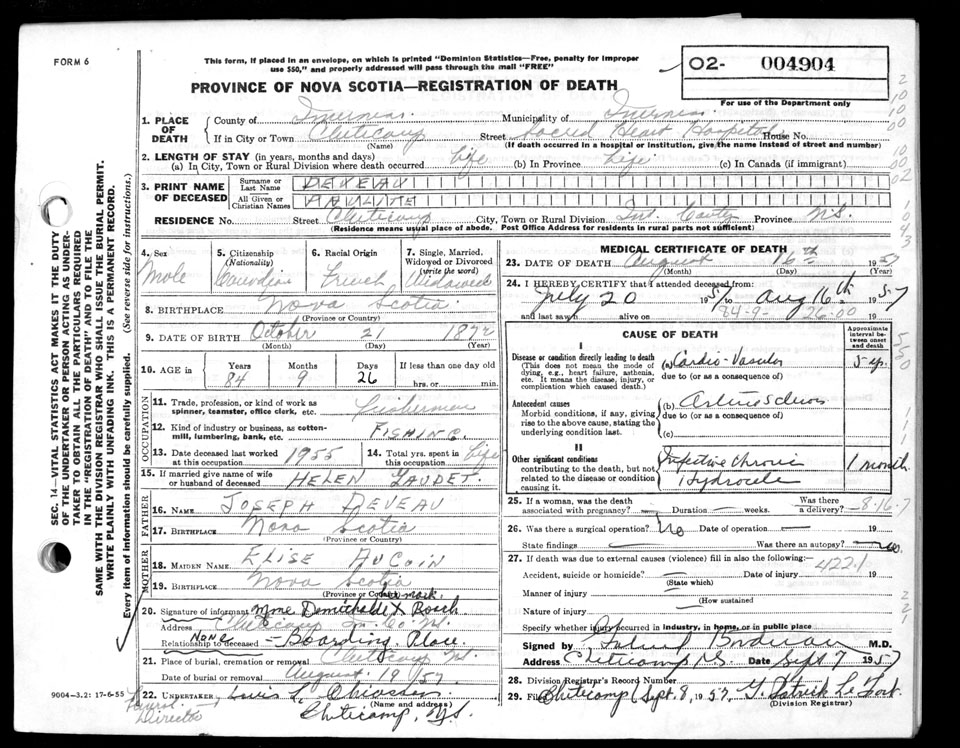 FORM 6
This form, if placed in an envelope, on which is printed "Dominion Statistics—Free, penalty for improper
use $50," and properly addressed will pass through the mail "FREE"
02- 004904
PROVINCE OF NOVA SCOTIA—REGISTRATION OF DEATH
For use of the Department only
1. PLACE OF DEATH
County of Inverness. Municipality of Inverness
If in City or Town Cheticamp Street Sacred Heart Hospital House No.
(Name) (If death occurred in a hospital or institution, give the name instead of street and number)
2. LENGTH OF STAY (in years, months and days)
(a) In City, Town or Rural Division where death occurred Life (b) In Province Life (c) In Canada (if immigrant)
3. PRINT NAME OF DECEASED
Surname or Last Name DEVEAU
All Given or Christian Names
RESIDENCE No. Street Cheticamp City, Town or Rural Division Inv. County Province N.S.
(Residence means usual place of abode. Post Office Address for residents in rural parts not sufficient)
4. Sex Male
5. Citizenship (Nationality) Canadian
6. Racial Origin French
7. Single, Married, Widowed or Divorced (write the word) Widowed
8. BIRTHPLACE Nova Scotia
(Province or Country)
9. DATE OF BIRTH October 21 1872
(Month) (Day) (Year)
10. AGE in Years 84 Months 9 Days 26 If less than one day old
hrs. or min.
OCCUPATION
11. Trade, profession, or kind of work as spinner, teamster, office clerk, etc. Fisherman
12. Kind of industry or business, as cotton-mill, lumbering, bank, etc. FISHING.
13. Date deceased last worked at this occupation 1955
14. Total yrs. spent in this occupation Life
15. If married give name of wife or husband of deceased HELEN GAUDET.
FATHER
16. NAME JOSEPH DEVEAU
17. BIRTHPLACE Nova Scotia
(Province or Country)
MOTHER
18. MAIDEN NAME ELISE AUCOIN
19. BIRTHPLACE Nova Scotia
(Province or Country)
her mark
20. Signature of informant Mme X Roach
Address Cheticamp In. Co. N.S.
Relationship to deceased None – Boarding Place.
21. Place of burial, cremation or removal Cheticamp N.S.
Date of burial or removal August 19 1957.
22. UNDERTAKER Louis L. Chiasson
(Name and address)
Cheticamp, N.S.
Funeral Director
9004-3.2: 17-6-55
MEDICAL CERTIFICATE OF DEATH
23. DATE OF DEATH August 16th 1957
(Month) (Day) (Year)
24. I HEREBY CERTIFY that I attended deceased from:
July 20 1957 to Aug 16th 1957
and last saw h alive on 19
84-9- 26-00
CAUSE OF DEATH
Approximate interval between onset and death
I
Disease or condition directly leading to death (a) Cardio-Vascular
(This does not mean the mode of dying, e.g., heart failure, asthenia, etc. It means the disease, injury, or complication which caused death.)
due to (or as a consequence of)
Antecedent causes (b)
Morbid conditions, if any, giving rise to the above cause, stating the underlying condition last.
due to (or as a consequence of)
(c)
II
Other significant conditions
contributing to the death, but not related to the disease or condition causing it.
Infective Chronic Hydrocele 1 month.
25. If a woman, was the death associated with pregnancy? Duration — weeks. Was there a delivery? –8-16-7
26. Was there a surgical operation? No Date of operation — 19
State findings — Was there an autopsy? no.
27. If death was due to external causes (violence) fill in also the following: 422.1
Accident, suicide or homicide? Date of injury 19
(State which)
Manner of injury
(How sustained
Nature of injury
Specify whether injury occurred in industry, in home, or in public place
Signed by M.D.
Address Cheticamp, N.S. Date Sept 7 1957
28. Division Registrar's Record Number
29. Filed Cheticamp Sept. 8, 1957, G. Patrick Le Fort
(Division Registrar)
SEC. 14—VITAL STATISTICS ACT MAKES IT THE DUTY
OF THE UNDERTAKER OR PERSON ACTING AS UNDER-
TAKER TO OBTAIN ALL THE PARTICULARS REQUIRED
IN THE "REGISTRATION OF DEATH" AND TO FILE THE
SAME WITH THE DIVISION REGISTRAR WHO SHALL ISSUE THE BURIAL PERMIT.
WRITE PLAINLY WITH UNFADING INK. THIS IS A PERMANENT RECORD.
Every item of information should be carefully supplied. (See reverse side for instructions.)